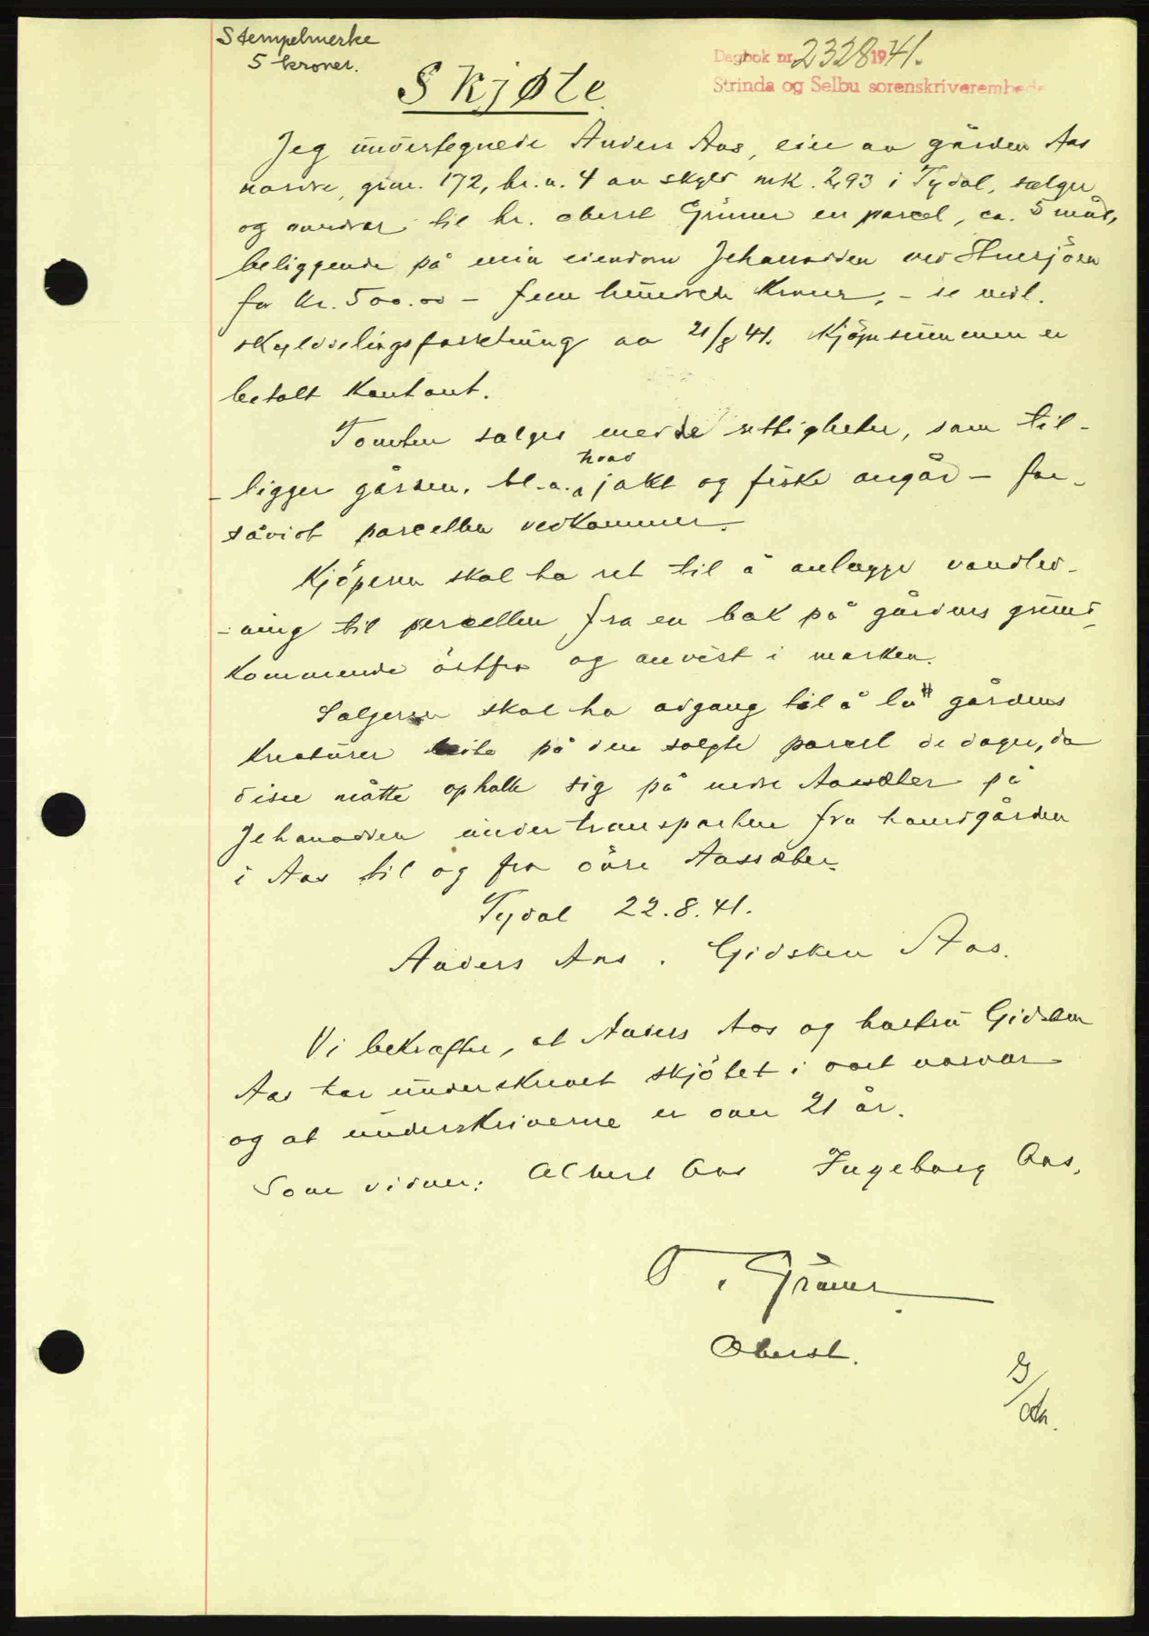 Stempelmerke
5 kroner.
Dagbok nr. 2328 1941.
Strinda og Selbu sorenskriverembede
Skjøte
Jeg undertegnede Anders Aas, eier av gården Aas
nordre, gnr. 172, br. n. 4 av skyld mk. 2,93 i Tydal, sælger
og overdrar til hr. oberst Grüner en parcel, ca. 5 mål,
beliggende på min eiendom Jehanodden ved
for kr. 500.00 – fem hundrede kroner, – se vedl.
skylddelingsforretning av 21/8 41. Kjöpesummen er
betalt kontant.
Tomten sælges med de rettigheter, som til-
-ligger gården, bl.a. hvad jakt og fiske angår – for-
såvidt parcellen vedkommer.
Kjöperen skal ha ret til å anlægge vandled-
-ning til parcellen fra en bæk på gårdens grund,
kommende östfra og anvist i marken.
Sælgeren skal ha adgang til å la gårdens
kreaturer beite på den solgte parcel de dager, da
disse måtte opholde sig på nedre Aassæter på
Jehanodden under transporten fra hovedgården
i Aas til og fra övre Aassæter.
Tydal 22.8.41.
Anders Aas. Gidsken Aas.
Vi bekræfter, at Anders Aas og hustru Gidsken
Aas har underskrevet skjötet i vort nærvær
og at underskriverne er over 21 år.
Som vidner: Albert Aas Ingeborg Aas.
O. Grüner
Oberst.